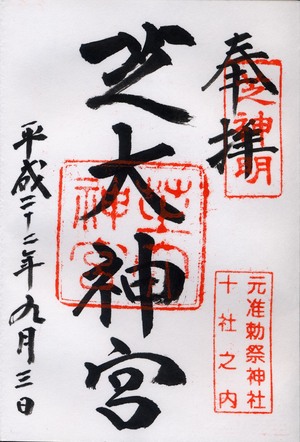 奉拝
芝神明
元准勅祭神社
十社之内
芝大神宮
芝大神宮
平成二十二年九月三日